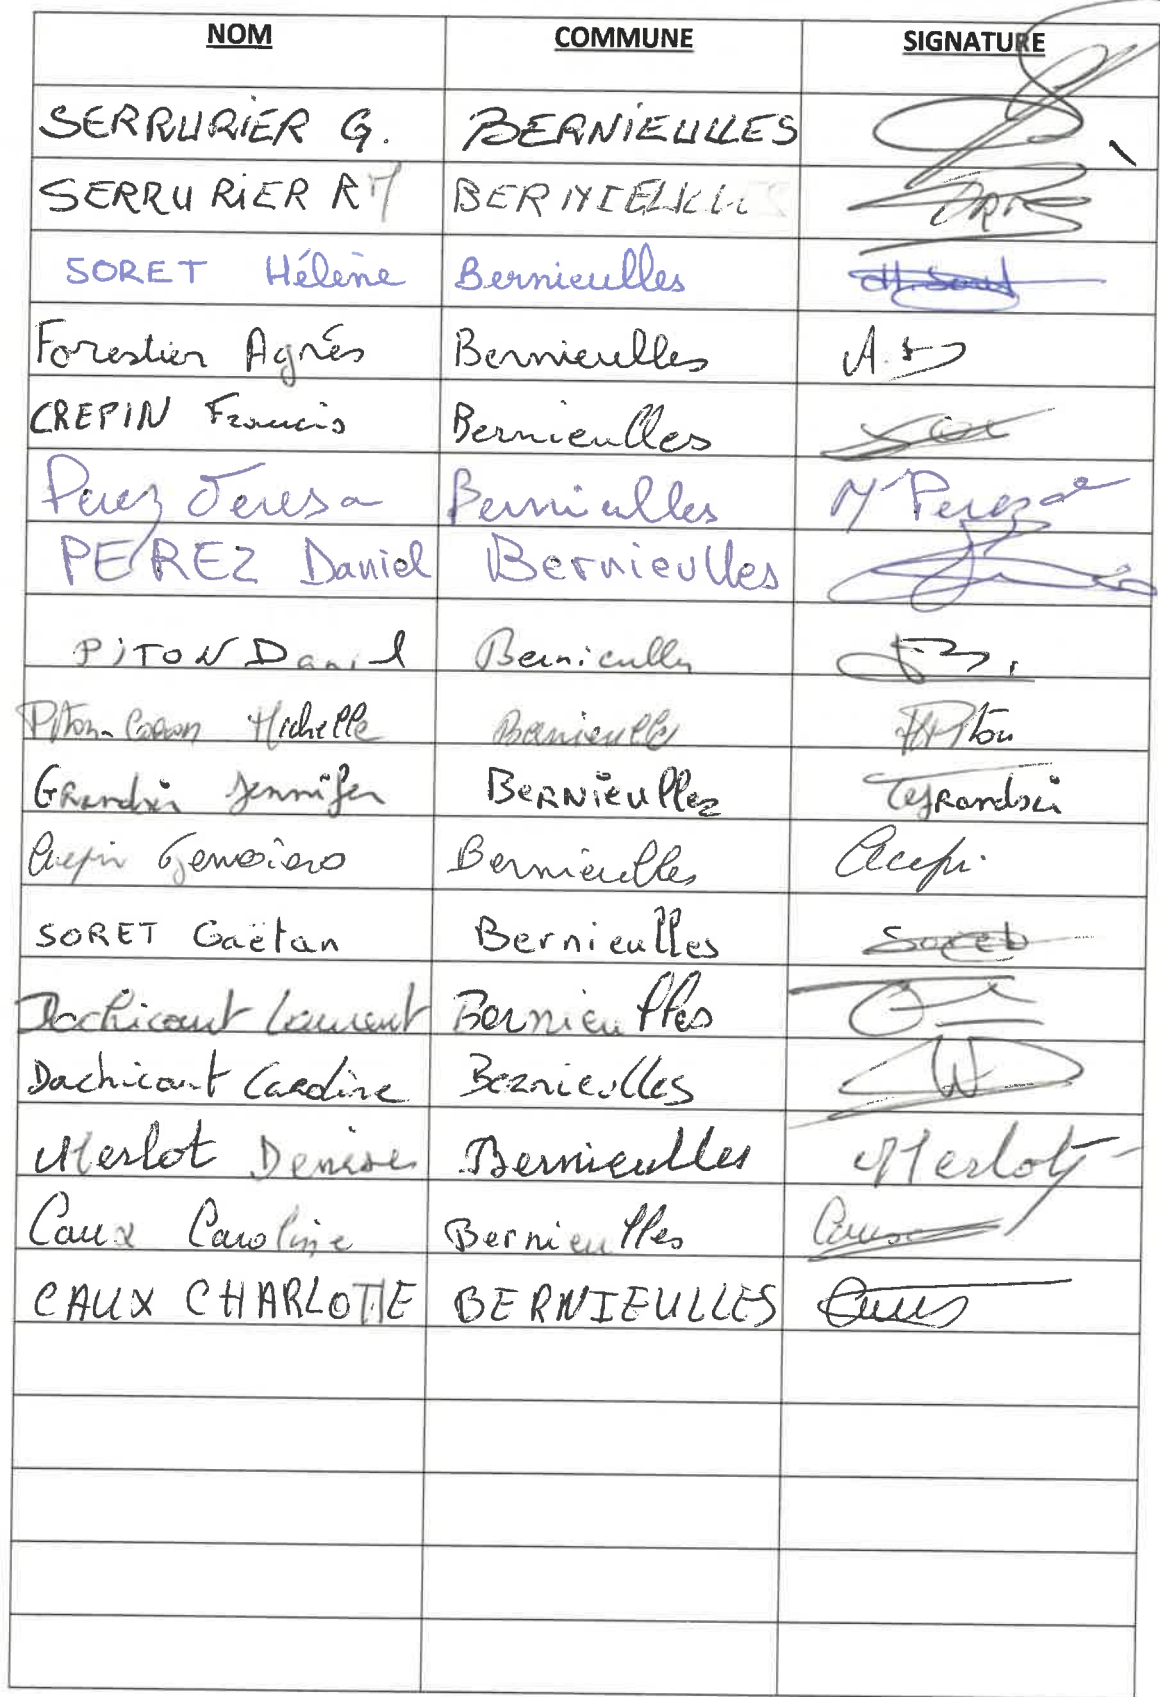 NOM COMMUNE SIGNATURE
SERRURIER G. BERNIEULLES
SERRURIER RM BERNIEULLES
SORET Hélène Bernieulles H. Soret
Forestier Agnès Bernieulles
CREPIN Francis Bernieulles
Perez Teresa Bernieulles M Perez
PEREZ Daniel Bernieulles
PITON Daniel Bernieulles
Piton Michelle Bernieulles Piton
Grandsir Jennifer Bernieulles Grandsir
Crepin Bernieulles
SORET Gaëtan Bernieulles Soret
Dachicourt Laurent Bernieulles
Dachicourt Caroline Bernieulles
Merlot Denise Bernieulles Merlot
Caux Caroline Bernieulles Caux
CAUX CHARLOTTE BERNIEULLES